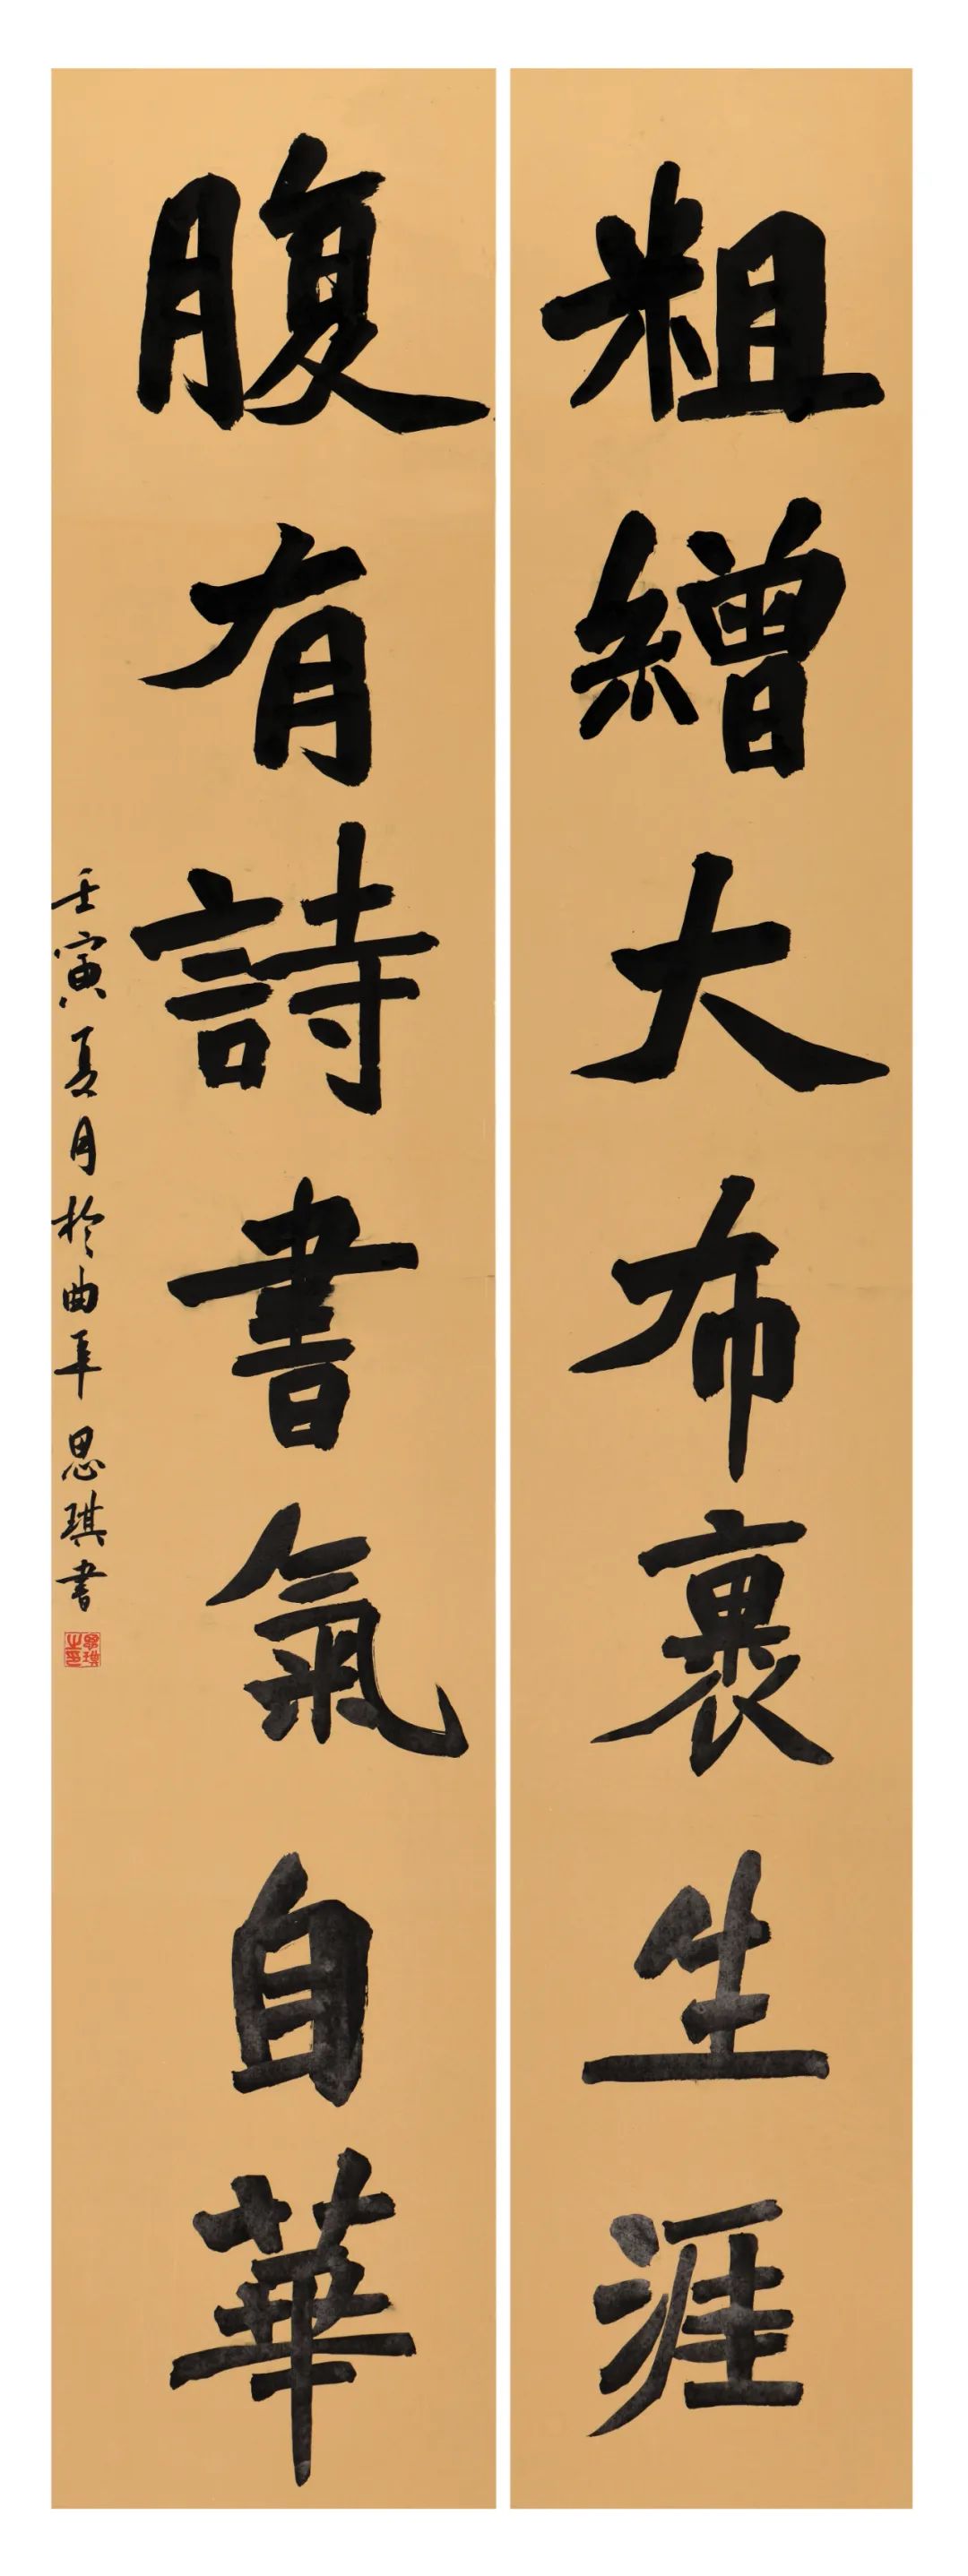 粗繒大布裹生涯
腹有詩書氣自華
壬寅夏月於曲阜思琪書